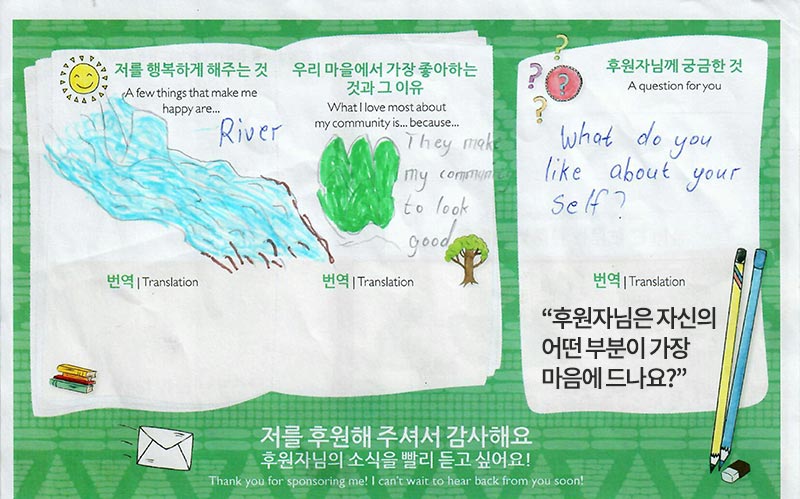 저를 행복하게 해주는 것
A few things that make me
happy are...
River
우리 마을에서 가장 좋아하는
것과 그 이유
What I love most about
my community is... because...
They make
my community
to look
good
번역 | Translation
번역 | Translation
후원자님께 궁금한 것
A question for you
What do you
like about your
self?
번역 | Translation
“후원자님은 자신의
어떤 부분이 가장
마음에 드나요?”
저를 후원해 주셔서 감사해요
후원자님의 소식을 빨리 듣고 싶어요!
Thank you for sponsoring me! I can't wait to hear back from you soon!